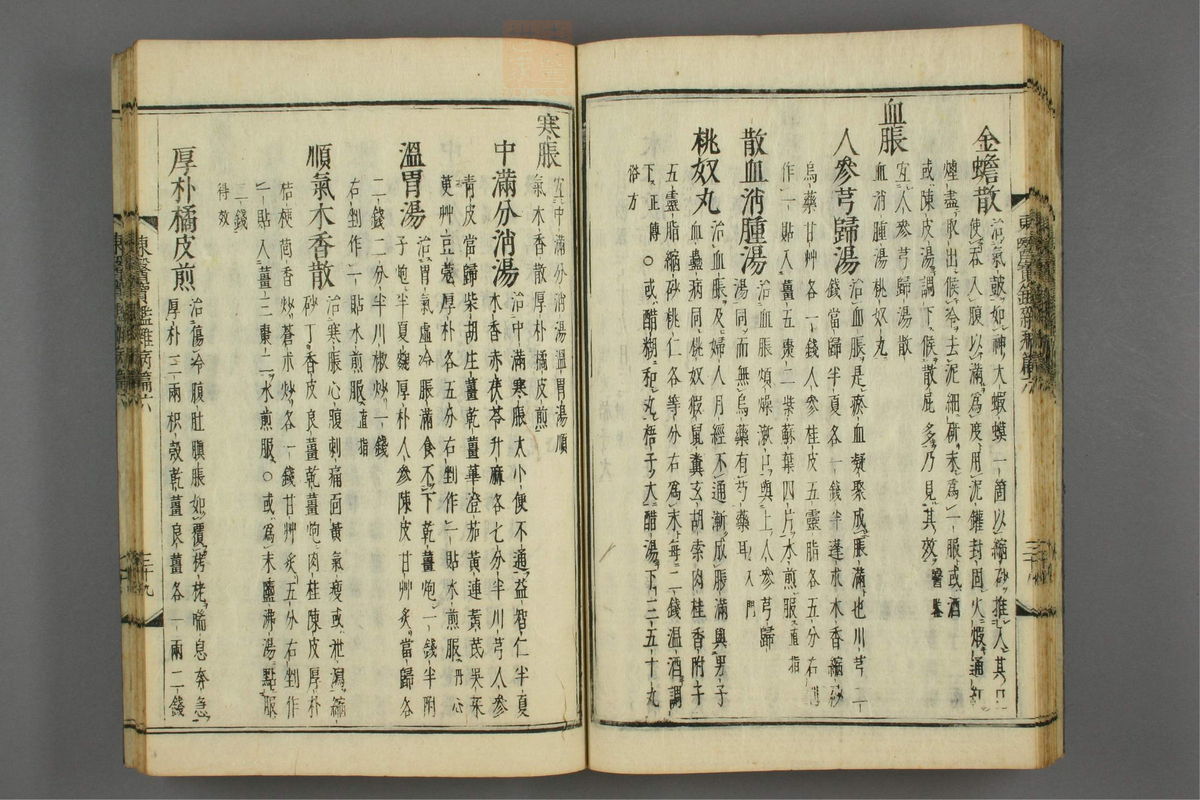 金蟾散治氣鼓如神大蝦蟆一箇以縮砂推入其口
使吞入腹以滿爲度用泥鑵封固火煆通紅
煙盡取出候冷去泥細硏末爲一服或酒
或陳皮湯調下候散屁多乃見其效醫鑒
血脹宜人參芎歸湯散
血消腫湯桃奴丸
人參芎歸湯治血脹是瘀血凝聚成脹滿也川芎二
錢當歸半夏各一錢半蓬朮木香縮砂
烏藥甘艸各一錢人參桂皮五靈脂各五分右剉
作一貼入薑五棗二紫蘇葉四片水煎服直指
散血消腫湯治血脹煩燥漱口與上人參芎歸
湯同而無烏藥有芍藥耳入門
桃奴丸治血脹及婦人月經不通漸成脹滿與男子
血蟲桃奴猳鼠糞玄胡索肉桂香附子
五靈脂縮砂桃仁各等分右爲末每二錢温酒調
下正傳○或醋糊和丸梧子大醋湯下三五十丸
俗方
寒脹宜中滿分消湯溫胃湯順
氣木香散厚朴橘皮煎
中滿分消湯治中滿寒脹大小便不通益智仁半夏
木香赤茯苓升麻各七分半川芎人參
靑皮當歸柴胡生薑乾薑蓽澄茄黃連黃芪吳茱
萸艸豆蔲厚朴各五分右剉作一貼水煎服丹心
溫胃湯治胃氣虛冷脹滿食不下乾薑炮一錢半附
子炮半夏麴厚朴人參陳皮甘艸炙當歸各
二錢二分半川椒炒一錢
右剉作二貼水煎服直指
順氣木香散治寒脹心腹刺痛面黃氣瘦或泄瀉縮
砂丁香皮良薑乾薑炮肉桂陳皮厚朴
桔梗茴香炒蒼朮炒各一錢甘艸炙五分右剉作
一貼入薑三棗二水煎服○或爲末鹽沸湯點服
二錢
得效
厚朴橘皮煎治傷冷腹肚䐜脹如覆栲栳喘息奔急
厚朴三兩枳殼乾薑良薑各一兩二錢
東醫寶鑑雜病篇六
三十九